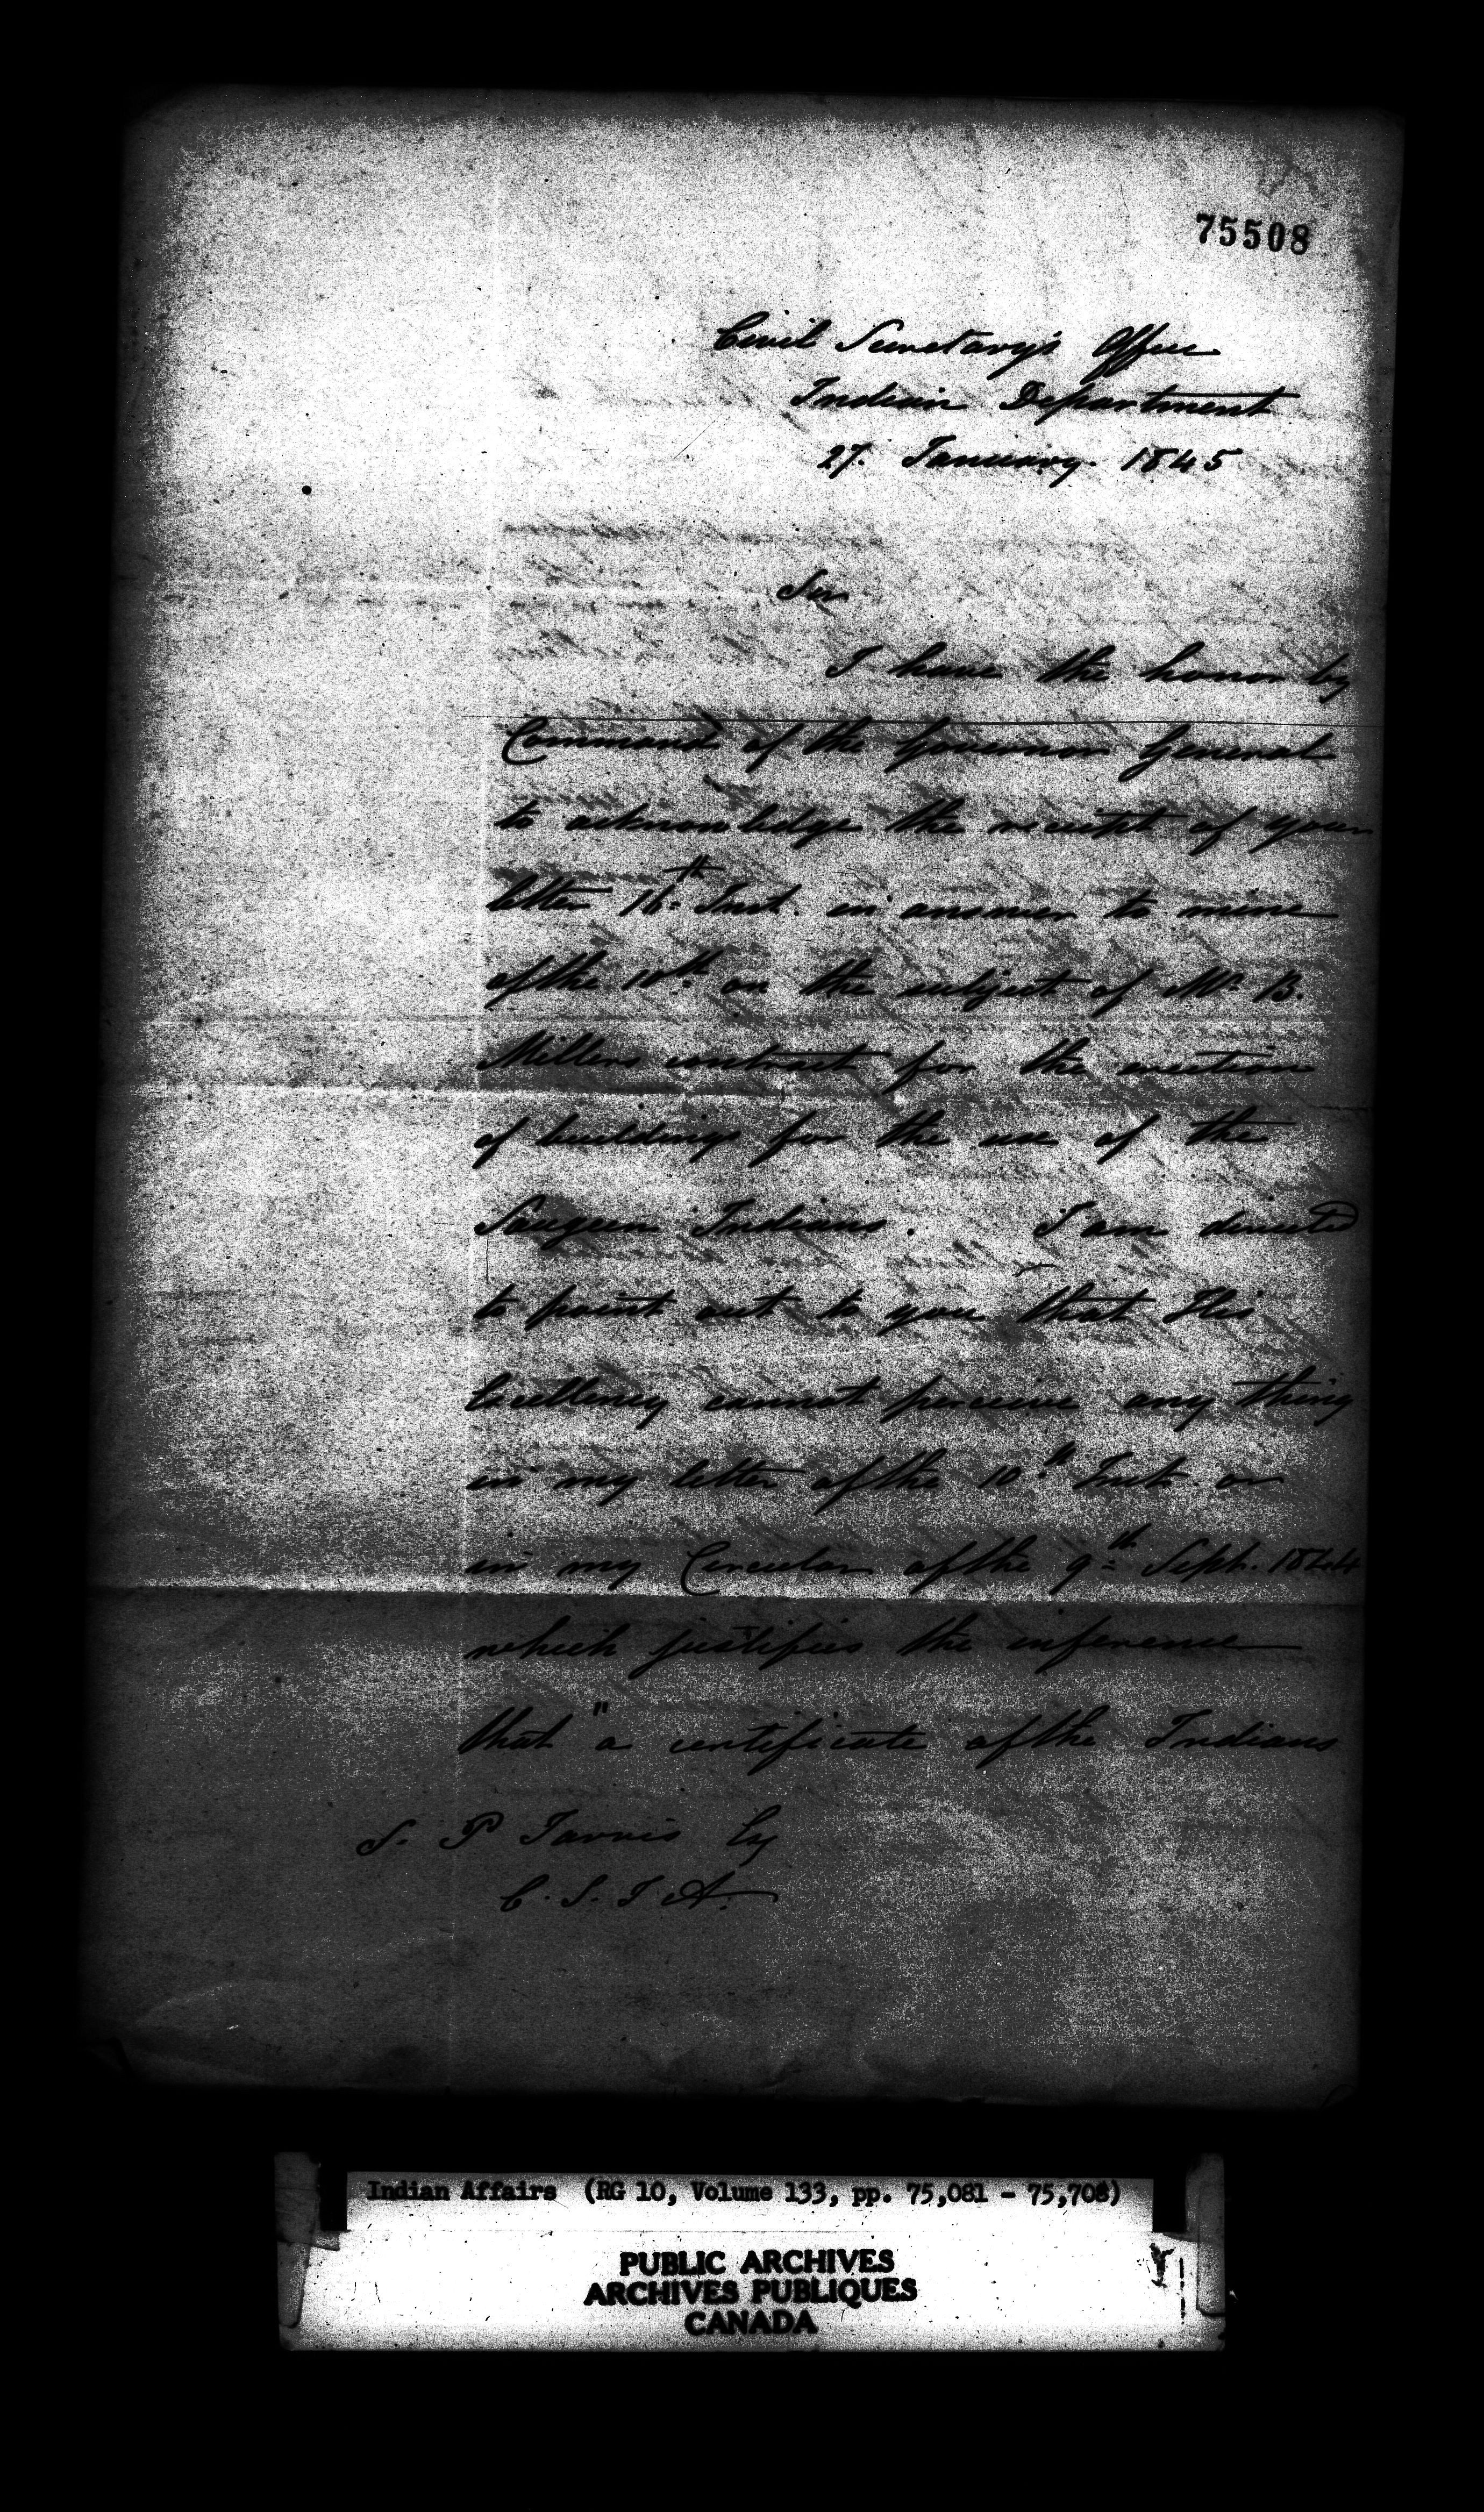 75508
Civil Secretary's Office
Indian Department
27. January. 1845
Sir
I have the honor by
Command of the Governor General
to acknowledge the receipt of your
letter 16th Inst. in answer to mine
of the 10th on the subject of Mr. B.
Millers contract for the erection
of buildings for the use of the
Saugeen Indians. I am directed
to point out to you that His
Excellency cannot perceive any thing
in my letter of the 10th Inst. or
in my Circular of the 9th Sept. 1844
which justifies the inference
that "a certificate of the Indians
S. P Jarvis Esq
C. S. I A.
Indian Affairs (RG 10, Volume 133, pp. 75,081 - 75,708)
PUBLIC ARCHIVES
ARCHIVES PUBLIQUES
CANADA